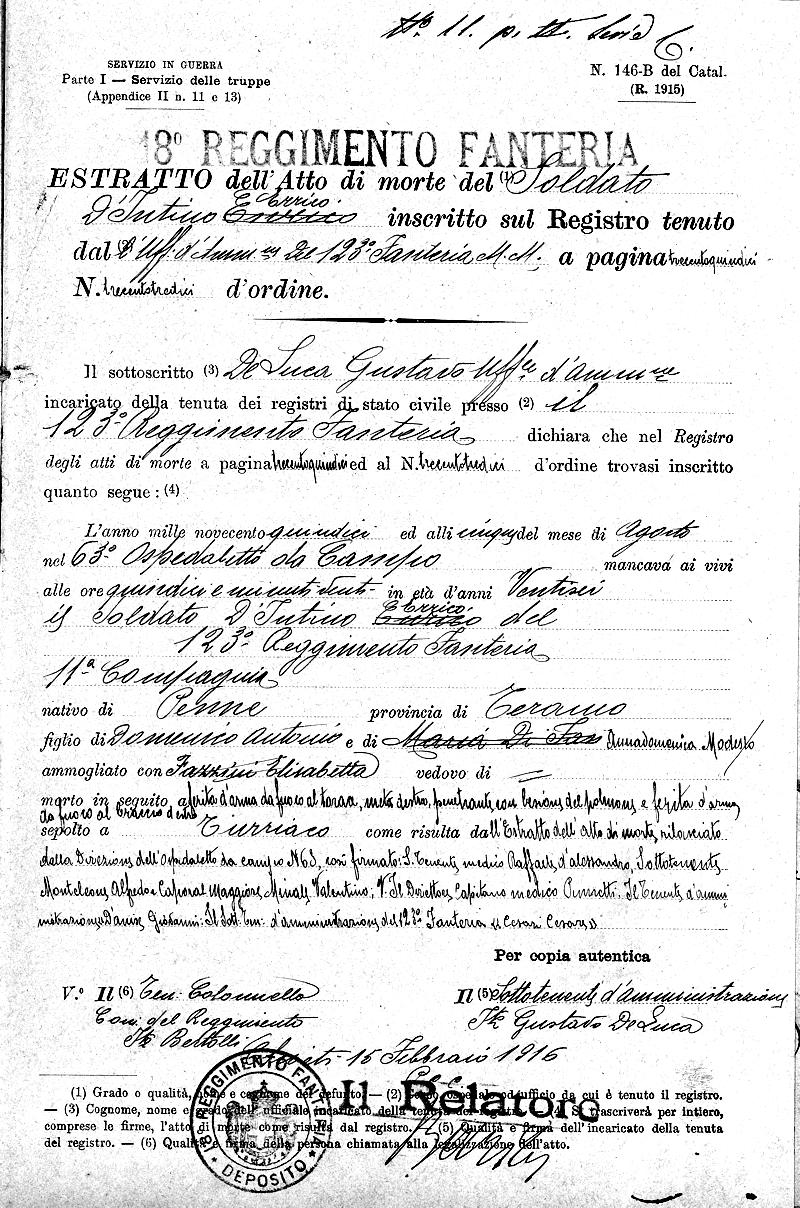 No 11. p. II. Serie C.
SERVIZIO IN GUERRA
Parte I — Servizio delle truppe
(Appendice II n. 11 e 13)
N. 146-B del Catal.
(R. 1915)
18º REGGIMENTO FANTERIA
ESTRATTO dell'Atto di morte del (1) Soldato
D'Intino Errico inscritto sul Registro tenuto
dal (2) Uff. d'Amm. ne del 123º Fanteria M. M. a pagina trecentoquindici
N. trecentotredici d'ordine.
Il sottoscritto (3) De Luca Gustavo Uff. le d'amm. ne
incaricato della tenuta dei registri di stato civile presso (2) il
123º Reggimento Fanteria dichiara che nel Registro
degli atti di morte a pagina trecentoquindici ed al N. trecentotredici d'ordine trovasi inscritto
quanto segue: (4)
L'anno mille novecento quindici ed alli cinque del mese di Agosto
nel 63º Ospedaletto da Campo mancava ai vivi
alle ore quindici e minuti venti in età d'anni Ventisei
il Soldato D'Intino Errico del
123º Reggimento Fanteria
11ª Compagnia
nativo di Penne provincia di Teramo
figlio di Domenico Antonio e di Maria Di Annadomenica Modesto
ammogliato con Fazzini Elisabetta vedovo di =
morto in seguito a ferita d'arma da fuoco al torace, metà destra, penetrante con lesione del polmone e ferita d'arma
da fuoco al braccio destro
sepolto a Turriaco come risulta dall'Estratto dell'atto di morte rilasciato
dalla Direzione dell'Ospedaletto da campo N 63, così firmato: S. Tenente medico Raffaele d'alessandro, Sottotenente
Monteleone Alfredo e Caporal Maggiore Valentino; V. Il Direttore Capitano medico Il Tenente d'ammi
nistrazione Giovanni: Il Sott. Ten. d'amministrazione del 123º Fanteria "Cesari Cesare"
Per copia autentica
V.º Il (6) Ten. Colonnello
Com. del Reggimento
Il (5) Sottotenente d'amministrazione
Gustavo De Luca
15 Febbraio 1916
Il Relatore
(1) Grado o qualità, nome e cognome del defunto. — (2) Corpo, ospedale od ufficio da cui è tenuto il registro.
— (3) Cognome, nome e grado dell'ufficiale incaricato della tenuta del registro. — (4) Si trascriverà per intiero,
comprese le firme, l'atto di morte come risulta dal registro. — (5) Qualità e firma dell'incaricato della tenuta
del registro. — (6) Qualità e firma della persona chiamata alla legalizzazione dell'atto.
18º REGGIMENTO FANTERIA
* DEPOSITO *